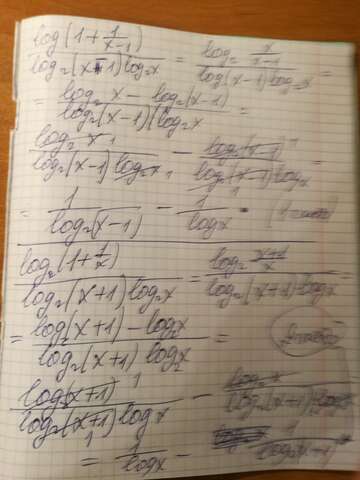 log(1 + 1/(x-1)) / (log₂(x-1) log₂x) = log₂ x/(x-1) / (log(x-1) log₂x)
= (log₂ x - log₂(x-1)) / (log₂(x-1) log₂x) =
log₂ x / (log₂(x-1) log₂x) - log₂(x-1) / (log₂(x-1) log₂x) =
= 1/log₂(x-1) - 1/logx
log₂(1 + 1/x) / (log₂(x+1) log₂x) = log₂ (x+1)/x / (log₂(x+1) logx)
= (log₂(x+1) - log₂x) / (log₂(x+1) log₂x) =
log₂(x+1) / (log₂(x+1) logx) - log₂x / (log₂(x+1) logx)
= 1/logx - 1/log₂(x+1)